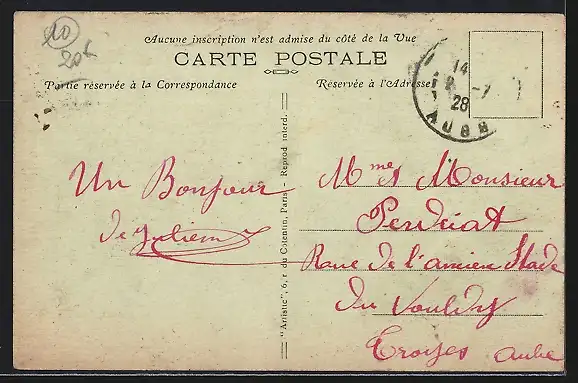 10
20€
Aucune inscription n'est admise du côté de la Vue
CARTE POSTALE
Partie réservée à la Correspondance
Réservée à l'Adresse
14
-7
28
AUBE
Un Bonjour
de Julien
"Artistic", 6, r du Cotentin, Paris - Reprod interd.
Mme & Monsieur
Perdriat
Rue de l'ancien Stade
du Vouldy
Troyes Aube